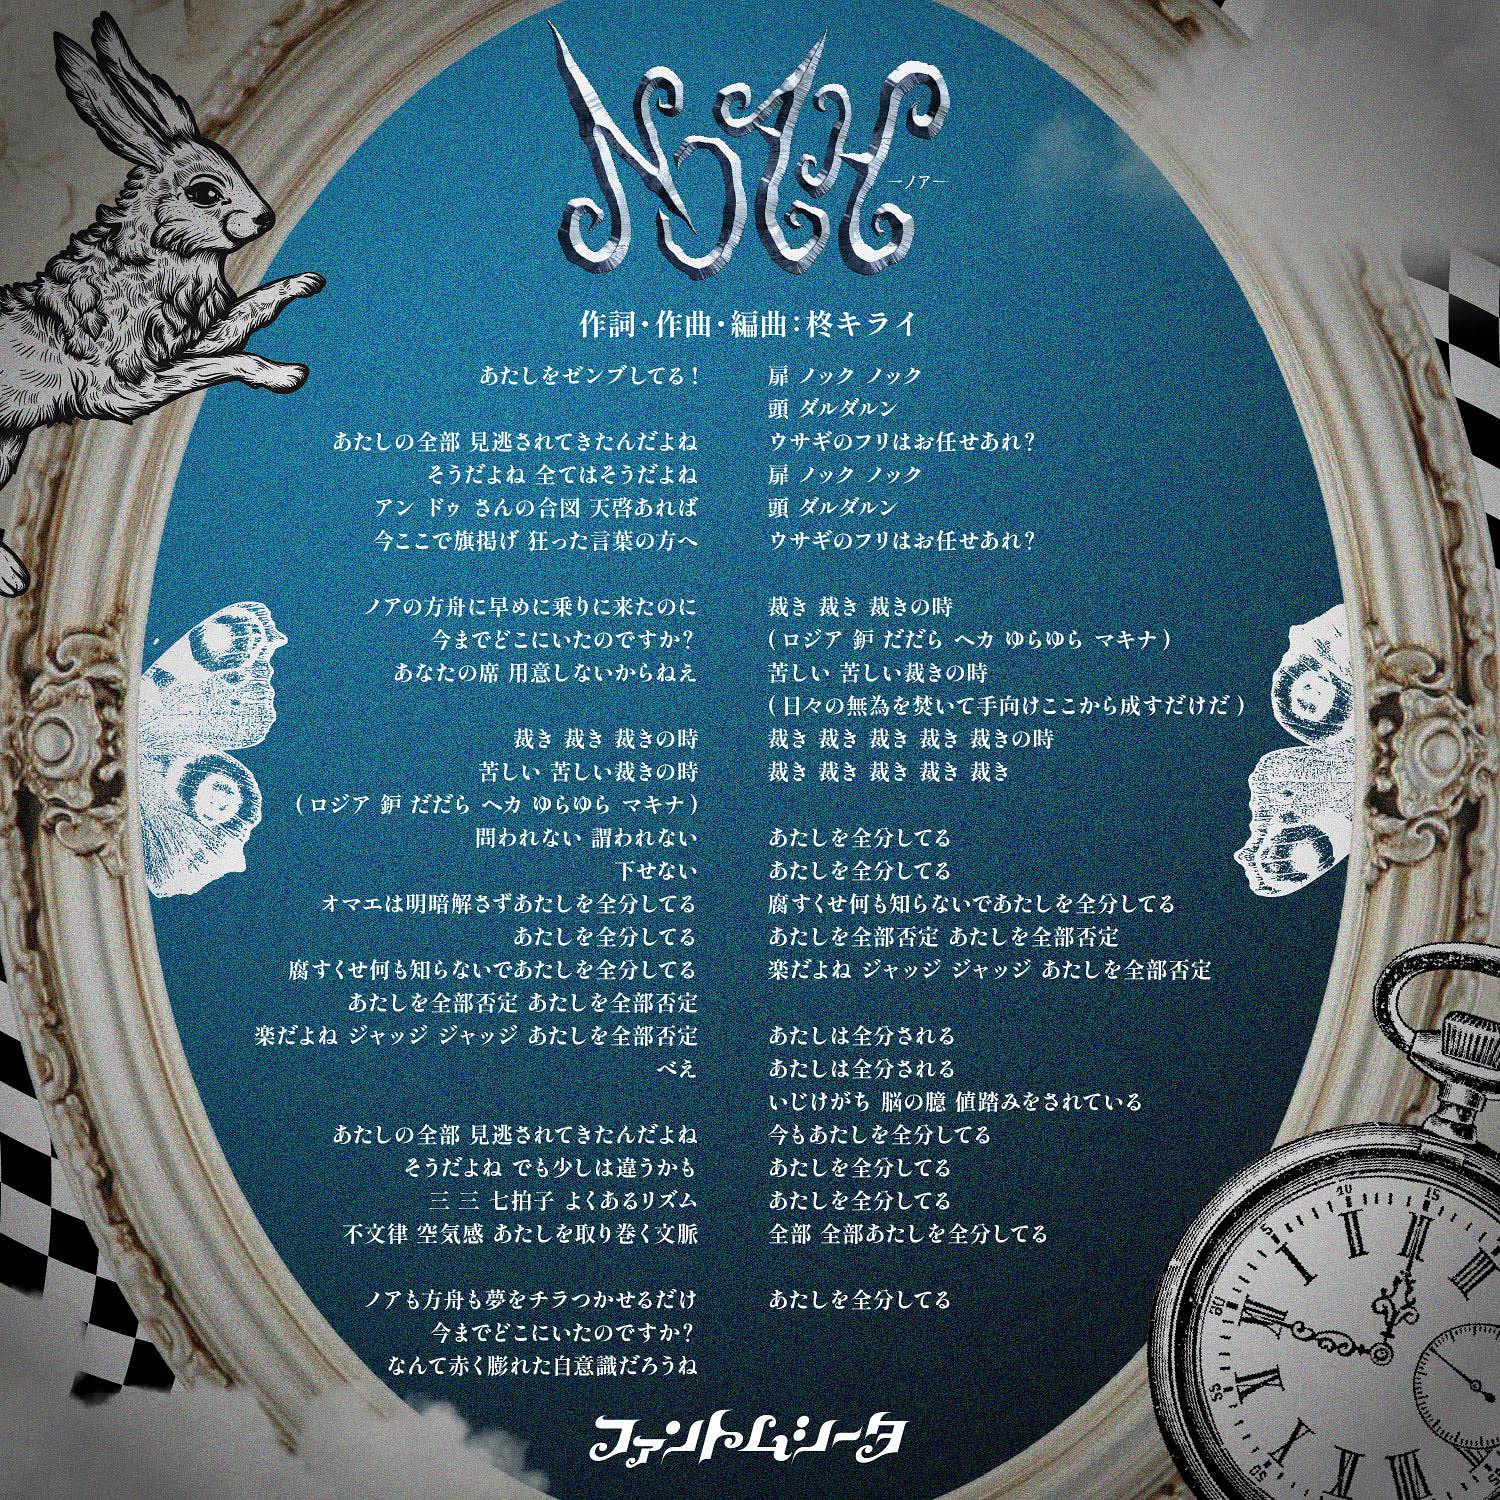 NOAH
ーノアー
作詞・作曲・編曲：柊キライ
あたしをゼンブしてる！
あたしの全部 見逃されてきたんだよね
そうだよね 全てはそうだよね
アン ドゥ さんの合図 天啓あれば
今ここで旗掲げ 狂った言葉の方へ
ノアの方舟に早めに乗りに来たのに
今までどこにいたのですか？
あなたの席 用意しないからねえ
裁き 裁き 裁きの時
苦しい 苦しい裁きの時
(ロジア 鈩 だだら ヘカ ゆらゆら マキナ)
問われない 謂われない
下せない
オマエは明暗解さずあたしを全分してる
あたしを全分してる
腐すくせ何も知らないであたしを全分してる
あたしを全部否定 あたしを全部否定
楽だよね ジャッジ ジャッジ あたしを全部否定
べえ
あたしの全部 見逃されてきたんだよね
そうだよね でも少しは違うかも
三 三 七拍子 よくあるリズム
不文律 空気感 あたしを取り巻く文脈
ノアも方舟も夢をチラつかせるだけ
今までどこにいたのですか？
なんて赤く膨れた自意識だろうね
扉 ノック ノック
頭 ダルダルン
ウサギのフリはお任せあれ？
扉 ノック ノック
頭 ダルダルン
ウサギのフリはお任せあれ？
裁き 裁き 裁きの時
(ロジア 鈩 だだら ヘカ ゆらゆら マキナ)
苦しい 苦しい裁きの時
(日々の無為を焚いて手向けここから成すだけだ)
裁き 裁き 裁き 裁き 裁きの時
裁き 裁き 裁き 裁き 裁き
あたしを全分してる
あたしを全分してる
腐すくせ何も知らないであたしを全分してる
あたしを全部否定 あたしを全部否定
楽だよね ジャッジ ジャッジ あたしを全部否定
あたしは全分される
あたしは全分される
いじけがち 脳の臆 値踏みをされている
今もあたしを全分してる
あたしを全分してる
あたしを全分してる
全部 全部あたしを全分してる
あたしを全分してる
ファントムシータ